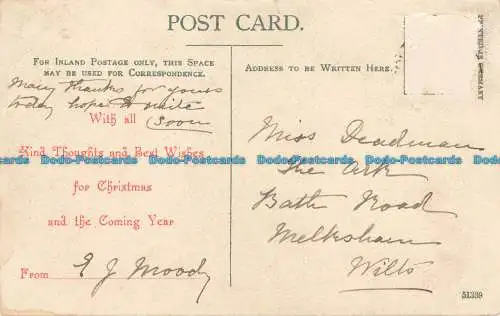 POST CARD.
FOR INLAND POSTAGE ONLY, THIS SPACE
MAY BE USED FOR CORRESPONDENCE.
ADDRESS TO BE WRITTEN HERE.
Many thanks for yours
today hope to write
soon
With all
Kind Thoughts and Best Wishes
for Christmas
and the Coming Year
From E J Moody
Miss Deadman
The Ark
Bath Road
Melksham
Wilts
51389
Bobo-Postcards Bobo-Postcards Bobo-Postcards Bobo-Postcards Bobo-Postcards